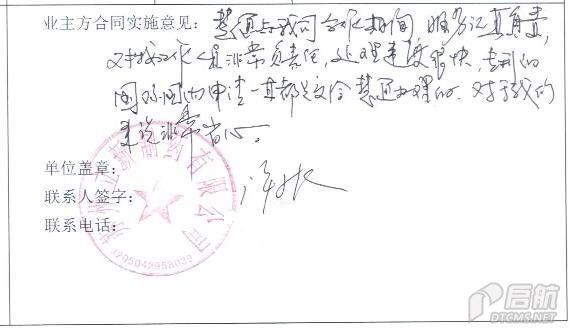 业主方合同实施意见: 慧通与我司合作期间,服务认真负责,
非常负责任,处理速度很快,专利的
国外国内申请一直都是交给慧通办理的.对于我们
来说非常省心。
单位盖章:
联系人签字:
联系电话:
有限公司
3205042958039
启航
DTCMS.NET